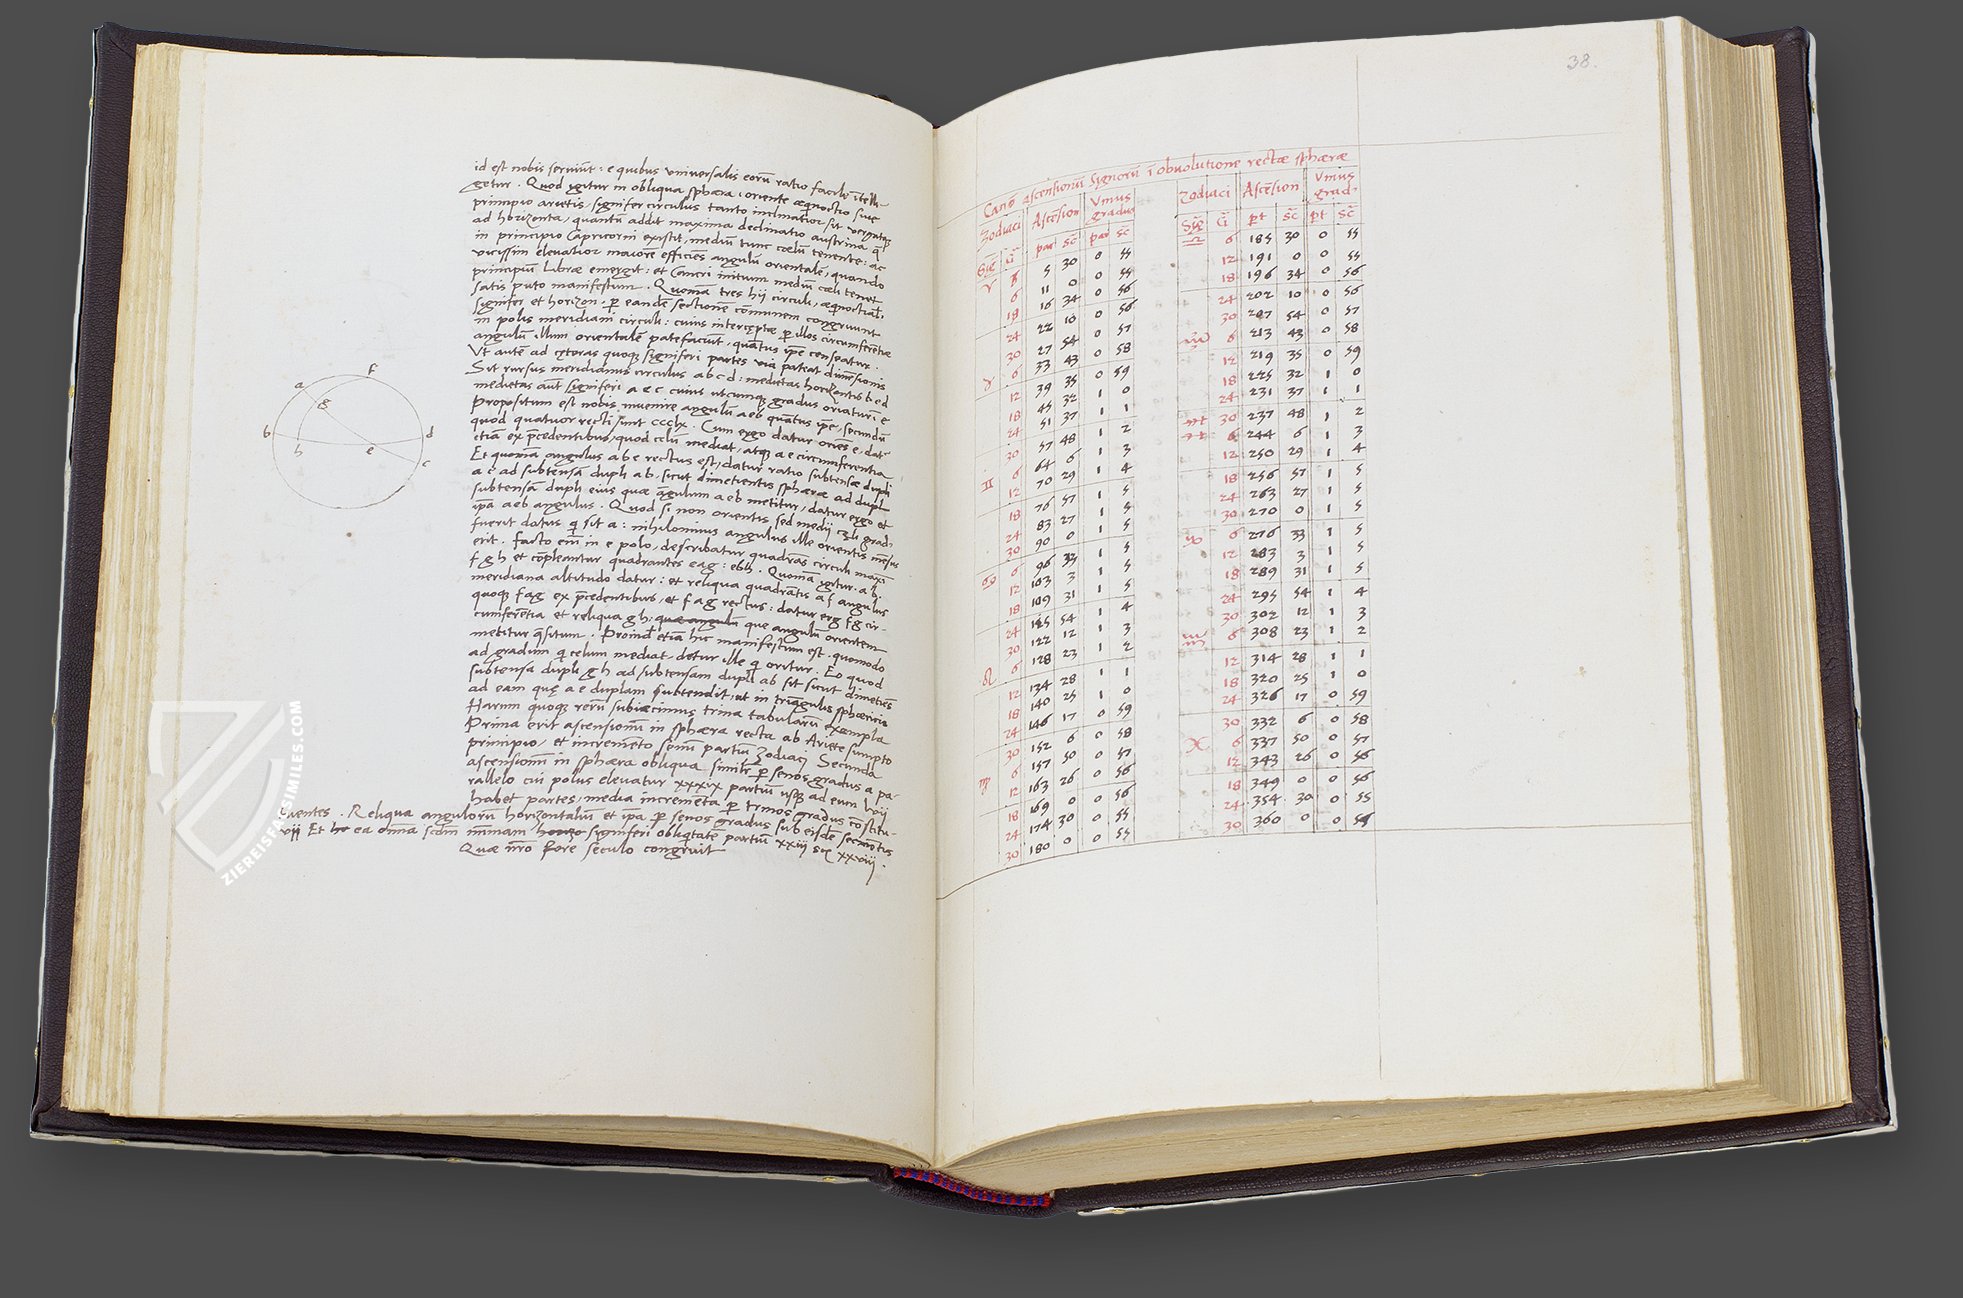 id est nobis serviunt : e quibus universalis eorū ratio facile ītelli-
getur . Quod igitur in obliqua sphæra , oriente æquoctio sive
principio arietis , signifer circulus tanto inclinatior sit vergatqȝ
ad horizonta , quantū addit maxima declinatio austrina q̄
in principio Capricorni existit , mediū tunc cœlū tenente : ac
vicissim elevatior maiorē efficiēs angulū orientalē , quando
principiū Libræ emergit : et Cancri initium mediū cœli tenet
satis puto manifestum . Quoniā tres hii circuli , æquoctiał ,
signifer et horizon , ꝑ eandē sectionē cōmunem congruunt
in polis meridiani circuli : cuius interceptæ ꝑ illos circumferētiæ
angulū illum orientalē patefaciūt , quātus ip̄e censeatur .
Ut autē ad cæteras quoqȝ signiferi partes via pateat dimēsionis
Sit rursus meridianus circulus a b c d : medietas horizontis b e d
medietas aūt signiferi a e c cuius utcumqȝ gradus oriatur ī e
Propositum est nobis invenire angulū a e b quātus ip̄e , secundū
quod quatuor recti sunt ccclx . Cum ergo datur oriēs e , dat~
etiā ex p̄cedentibus , quod cœlū mediat , atqȝ a e circumferentia
Et quoniā angulus a b e rectus est , datur ratio subtensæ dupli
a e ad subtensā dupli a b , sicut dimetientis sphæræ ad duplū
subtensā dupli eius quæ āgulum a e b metitur , datur ergo et
ip̄a a e b angulus . Quod si non orientis sed medii cœli grad~
fuerit datus q̄ sit a : nihilominus angulus ille orientis mēsus
erit . facto em̄ in e polo , describatur quadrās circuli maxi
f g h et cōpleantur quadrantes e a g : e b h . Quoniā igitur a b
meridiana altitudo datur : et reliqua quadrātis a f angulus
quoqȝ f a g ex p̄cedentibus , et f g a rectus : datur erg f g cir-
cumferētia et reliqua g h , quæ angulū que angulū orientem
metitur q̄situm . Proind etiā hic manifestum est , quomodo
ad gradum q̄ celum mediat , detur ille q̄ oritur . Eo quod
subtensa dupli g h ad subtensam dupli a b sit sicut dimetiēs
ad eam quę a e duplam subtendit , ut in triāgulis sphæricis
Harum quoqȝ rerū subiecimus trina tabularū exempla
Prima erit ascensionū in sphæra recta ab Ariete sumpto
principio , et incremēto senūm partiū Zodiaci Secunda
ascensionū in sphæra obliqua similr̄ ꝑ senos gradus a pa-
rallelo cui polus elevatur xxxix partiū usqȝ ad eum lvii
habet partes , media incremēta ꝑ trinos gradus cōstitu-
entes . Reliqua angulorū horizontaliū et ip̄a ꝑ senos gradus sub eisdē sectionis
vii Et he ea om̄ia sedm̄ minimam signiferi obliqtatē partiū xxiii scr xxviii .
Quæ nr̄o fore seculo congruit
a f g b d h e c
ZIEREISFACSIMILES.COM
38.
Canō ascensionū signorū ī obvolutione rectæ sphæræ
Zodiaci Ascēsion Vnius gradus Zodiaci Ascēsion Vnius grad~
Sig G par sc par sc Sig G pt sc pt sc
♈ 6 5 30 0 55 ♎ 6 185 30 0 55
12 11 0 0 55 12 191 0 0 55
18 16 34 0 56 18 196 34 0 56
24 22 10 0 56 24 202 10 0 56
30 27 54 0 57 30 207 54 0 57
♉ 6 33 43 0 58 ♏ 6 213 43 0 58
12 39 35 0 59 12 219 35 0 59
18 45 32 1 0 18 225 32 1 0
24 51 37 1 1 24 231 37 1 1
30 57 48 1 2 30 237 48 1 2
♊ 6 64 6 1 3 ♐ 6 244 6 1 3
12 70 29 1 4 12 250 29 1 4
18 76 57 1 5 18 256 57 1 5
24 83 27 1 5 24 263 27 1 5
30 90 0 1 5 30 270 0 1 5
♋ 6 96 33 1 5 ♑ 6 276 33 1 5
12 103 3 1 5 12 283 3 1 5
18 109 31 1 5 18 289 31 1 5
24 115 54 1 4 24 295 54 1 4
30 122 12 1 3 30 302 12 1 3
♌ 6 128 23 1 2 ♒ 6 308 23 1 2
12 134 28 1 1 12 314 28 1 1
18 140 25 1 0 18 320 25 1 0
24 146 17 0 59 24 326 17 0 59
30 152 6 0 58 30 332 6 0 58
♍ 6 157 50 0 57 ♓ 6 337 50 0 57
12 163 26 0 56 12 343 26 0 56
18 169 0 0 56 18 349 0 0 56
24 174 30 0 55 24 354 30 0 55
30 180 0 0 55 30 360 0 0 55